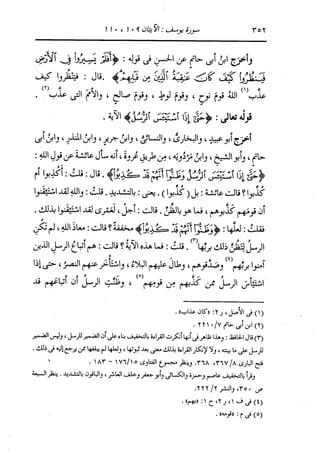 ٣٥٢ سورة يوسف : الآيتان ١٠٩ ، ١١٠
وأخرج ابنُ أبي حاتم عن الحسنِ في قوله : ﴿أَفَلَمْ يَسِيرُوا فِي الْأَرْضِ
فَيَنظُرُوا كَيْفَ كَانَ عَاقِبَةُ الَّذِينَ مِن قَبْلِهِمْ﴾ . قال : فينظروا كيف
عذَّب(١) اللهُ قومَ نوحٍ ، وقومَ لوطٍ ، وقومَ صالحٍ ، والأممَ التي عذَّب(٢) .
قوله تعالى : ﴿حَتَّى إِذَا اسْتَيْئَسَ الرُّسُلُ﴾ الآية .
أخرج أبو عبيدٍ ، والبخاريُّ ، والنسائيُّ ، وابنُ جريرٍ ، وابنُ المنذرِ ، وابنُ أبي
حاتمٍ ، وأبو الشيخِ ، وابنُ مَرْدُويَه ، من طريقِ عُروةَ ، أنه سأل عائشةَ عن قولِ اللهِ :
﴿حَتَّى إِذَا اسْتَيْئَسَ الرُّسُلُ وَظَنُّوا أَنَّهُمْ قَدْ كُذِبُوا﴾ . قال : قلتُ : أكُذِبوا أم
كُذِّبوا؟ قالت عائشةُ : بل (كُذِّبوا) . يعنى : بالتشديدِ . قلتُ : واللهِ لقد استيقَنوا
أن قومَهم كذَّبوهم ، فما هو بالظنِّ . قالت : أجَلْ ، لَعَمْرى لقد استيقَنوا بذلك .
فقلتُ : لعلَّها : ﴿وَظَنُّوا أَنَّهُمْ قَدْ كُذِبُوا﴾ مخفَّفةً؟ قالت : معاذَ اللهِ ، لم تكنِ
الرسلُ لتظنَّ ذلك بربِّها(٣) . قلتُ : فما هذه الآيةُ؟ قالت : هم أتباعُ الرسلِ الذين
آمَنوا بربِّهم(٤) وصدَّقوهم ، وطال عليهم البلاءُ ، واستأخَر عنهم النصرُ ، حتى إذا
استيأَس الرسلُ ممن كذَّبهم مِن قومِهم(٥) ، وظنَّتِ الرسلُ أن أتباعَهم قد
(١) في الأصل ، ر٢ : «كان عذاب» .
(٢) ابن أبي حاتم ٧/ ٢٢١٠ .
(٣) قال الحافظ : وهذا ظاهر في أنها أنكرت القراءة بالتخفيف بناء على أن الضمير للرسل ، وليس الضمير
للرسل على ما بينته ، ولا لإنكار القراءة بذلك معنى بعد ثبوتها ، ولعلها لم يبلغها ممن يرجع إليه في ذلك .
فتح البارى ٨/ ٣٦٧، ٣٦٨. وينظر مجموع الفتاوى ١٥/ ١٧٦ - ١٨٣ .
وقرأ بالتخفيف عاصم وحمزة والكسائى وأبو جعفر وخلف العاشر ، والباقون بالتشديد . ينظر السبعة
ص ٣٥٠، والنشر ٢/ ٢٢٢.
(٤) في ف ١، ر٢، ح ١ : «بهم» .
(٥) في م : «قومه» .